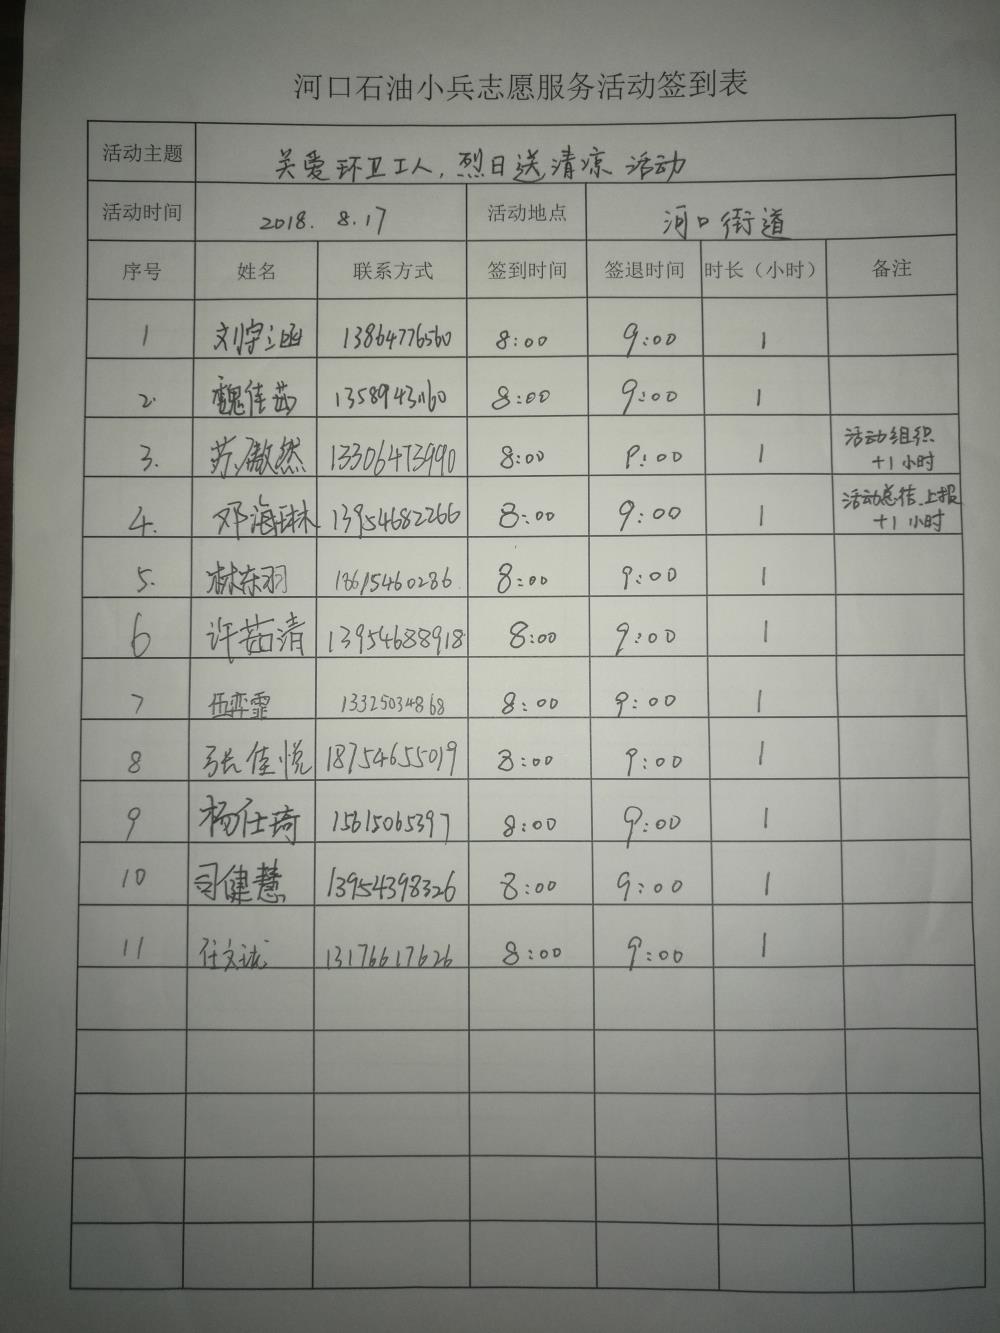 河口石油小兵志愿服务活动签到表
活动主题 关爱环卫工人,烈日送清凉 活动
活动时间 2018. 8.17 活动地点 河口街道
序号 姓名 联系方式 签到时间 签退时间 时长（小时） 备注
1 刘宇涵 13864776560 8:00 9:00 1
2. 魏佳茹 13589943160 8:00 9:00 1
3. 苏傲然 13306473990 8:00 9:00 1 活动组织
+1小时
4. 邓海琳 13954682266 8:00 9:00 1 活动总结、上报
+1 小时
5. 林东羽 18615460286 8:00 9:00 1
6 许茹清 13954688918 8:00 9:00 1
7 伍弈霏 13325034868 8:00 9:00 1
8 张佳悦 18754655019 8:00 9:00 1
9 杨仕琦 15615065397 8:00 9:00 1
10 司健慧 13954398326 8:00 9:00 1
11 任文诚 13176617626 8:00 9:00 1